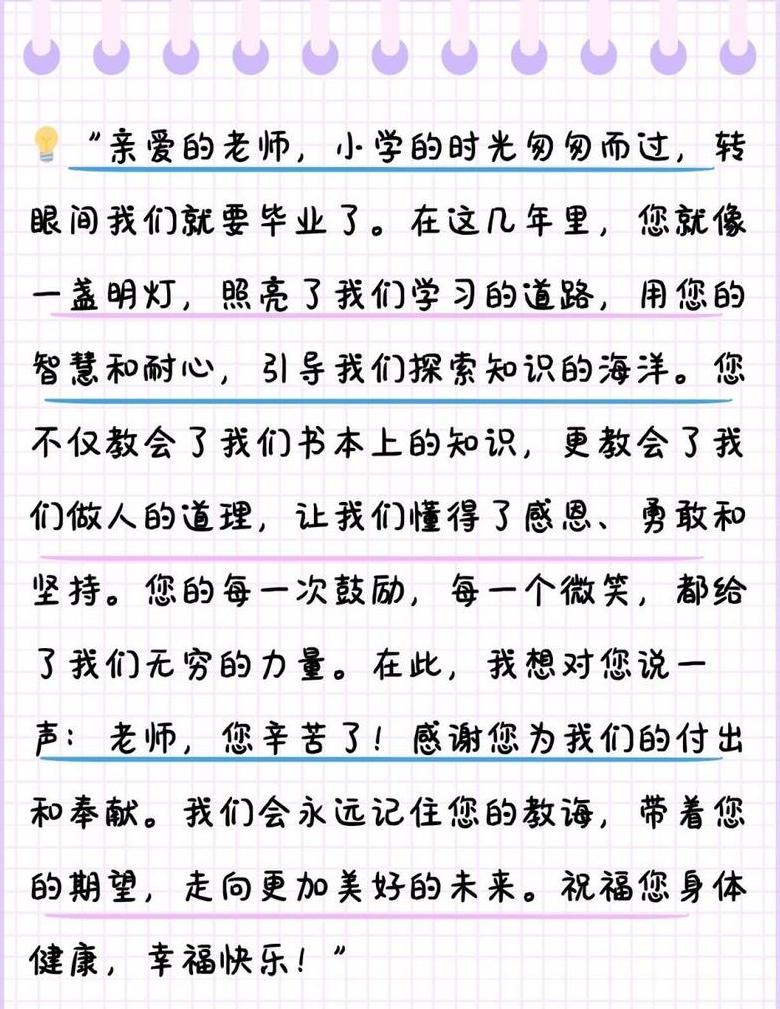 “亲爱的老师，小学的时光匆匆而过，转
眼间我们就要毕业了。在这几年里，您就像
一盏明灯，照亮了我们学习的道路，用您的
智慧和耐心，引导我们探索知识的海洋。您
不仅教会了我们书本上的知识，更教会了我
们做人的道理，让我们懂得了感恩、勇敢和
坚持。您的每一次鼓励，每一个微笑，都给
了我们无穷的力量。在此，我想对您说一
声：老师，您辛苦了！感谢您为我们的付出
和奉献。我们会永远记住您的教诲，带着您
的期望，走向更加美好的未来。祝福您身体
健康，幸福快乐！”